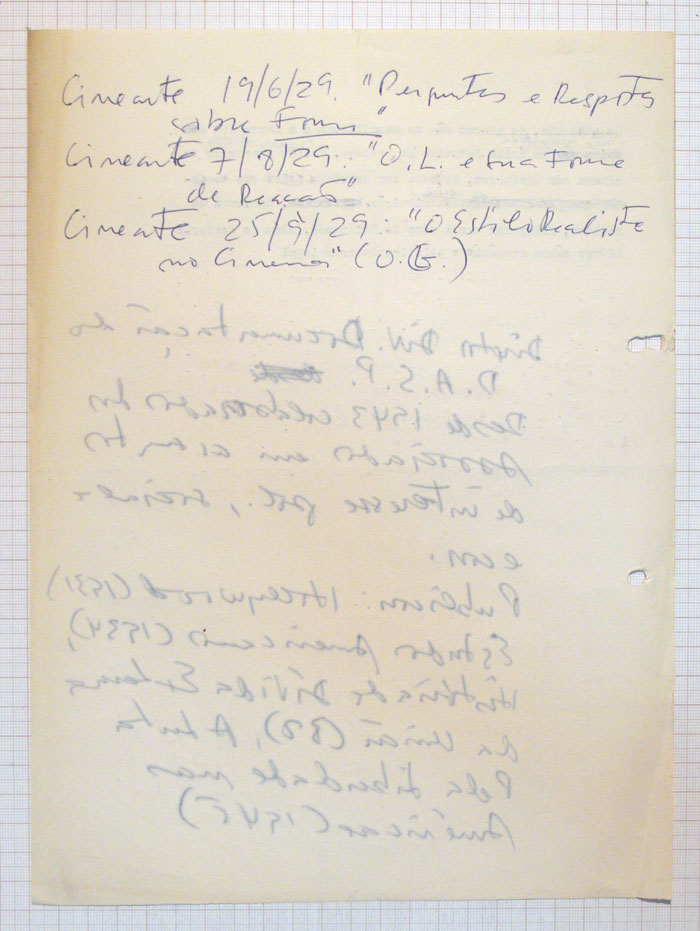 Cinearte 19/6/29. "Perguntas e Respostas
sobre Fome"
Cinearte 7/8/29. "O.L. e sua Fome
de Reacção"
Cinearte 25/9/29. "O Estilo Realista
no Cinema" (O.G.)
Diretor Div. Documentação do
D.A.S.P.
Desde 1943 colaborador dos
Associados em assuntos
de interesse pol., social e
econ.
Publicou: Hollywood (1931)
Estudos Americanos (1934),
História de Dívida Externa
da União (38), A Luta
Pela Liberdade nas
Américas (1945)